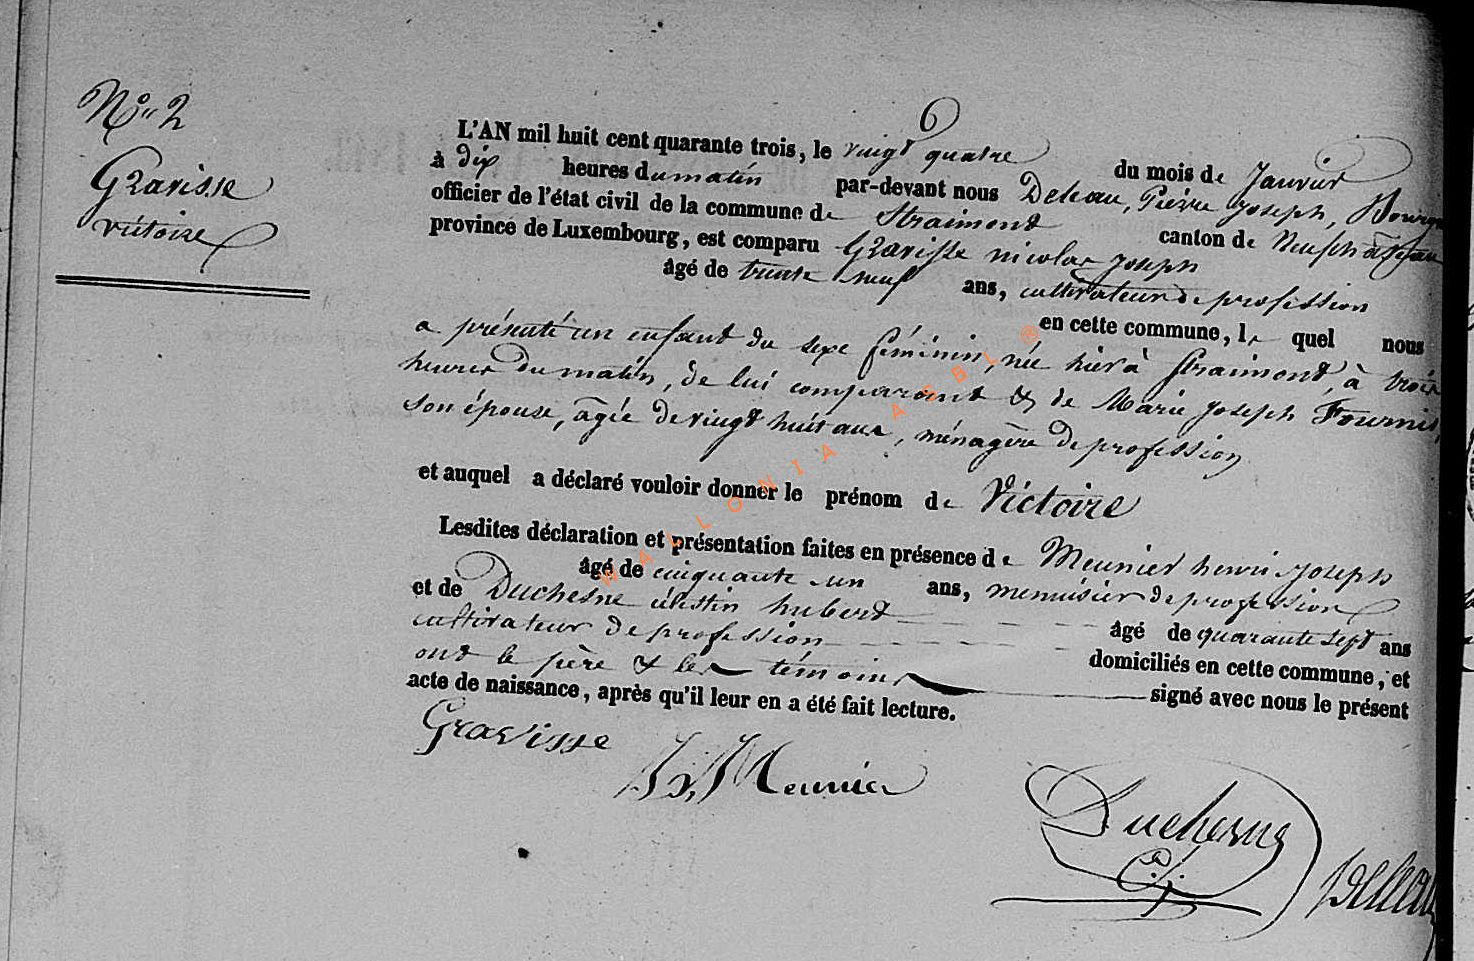 N° 2
Gravisse
victoire
6
L'AN mil huit cent quarante trois, le vingt quatre du mois de Janvier
à dix heures du matin par-devant nous Deleau, Pierre Joseph, Bourgm
officier de l'état civil de la commune de Straimont canton de Neufchâteau
province de Luxembourg, est comparu Gravisse nicolas Joseph
âgé de trente neuf ans, cultivateur de profession
en cette commune, le quel nous
a présenté un enfant du sexe féminin, née hier à Straimont, à trois
heures du matin, de lui comparant & de Marie Joseph Fournis,
son épouse, âgée de vingt huit ans, ménagère de profession
et auquel a déclaré vouloir donner le prénom de Victoire
Lesdites déclaration et présentation faites en présence de Meunier henri Joseph
âgé de cinquante un ans, menuisier de profession
et de Duchesne célestin hubert âgé de quarante sept ans
cultivateur de profession domiciliés en cette commune, et
ont le père & les témoins signé avec nous le présent
acte de naissance, après qu'il leur en a été fait lecture.
Gravisse
Meunier
Duchesne
Deleau
WALLONIA ASBL ®